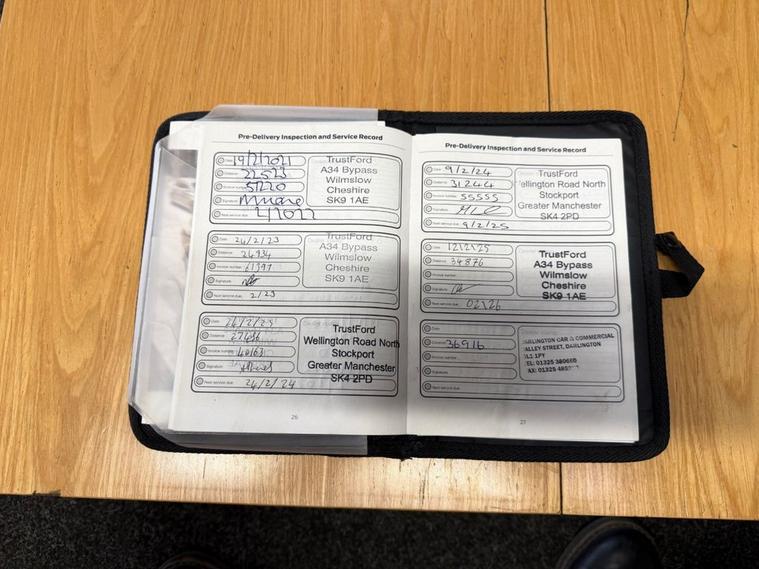 Pre-Delivery Inspection and Service Record
Date 19/2/2021
Distance 22523
Invoice number 51220
Signature
Next service due 2/2022
TrustFord
A34 Bypass
Wilmslow
Cheshire
SK9 1AE
Date 24/2/23
Distance 24934
Invoice number 61397
Signature
Next service due 2/23
TrustFord
A34 Bypass
Wilmslow
Cheshire
SK9 1AE
Date
Distance 27486
Invoice number
Signature
Next service due 24/2/24
TrustFord
Wellington Road North
Stockport
Greater Manchester
SK4 2PD
26
Pre-Delivery Inspection and Service Record
Date 9/2/24
Distance 31244
Invoice number 55555
Signature
Next service due 9/2/25
TrustFord
ellington Road North
Stockport
Greater Manchester
SK4 2PD
Date 12/2/25
Distance 34876
Invoice number
Signature
Next service due 02/26
TrustFord
A34 Bypass
Wilmslow
Cheshire
SK9 1AE
Date
Distance 36916
Invoice number
Signature
Next service due
ARLINGTON CAR & COMMERCIAL
ALLEY STREET, DARLINGTON
L1 1PY
EL: 01325 380666
AX: 01325
27